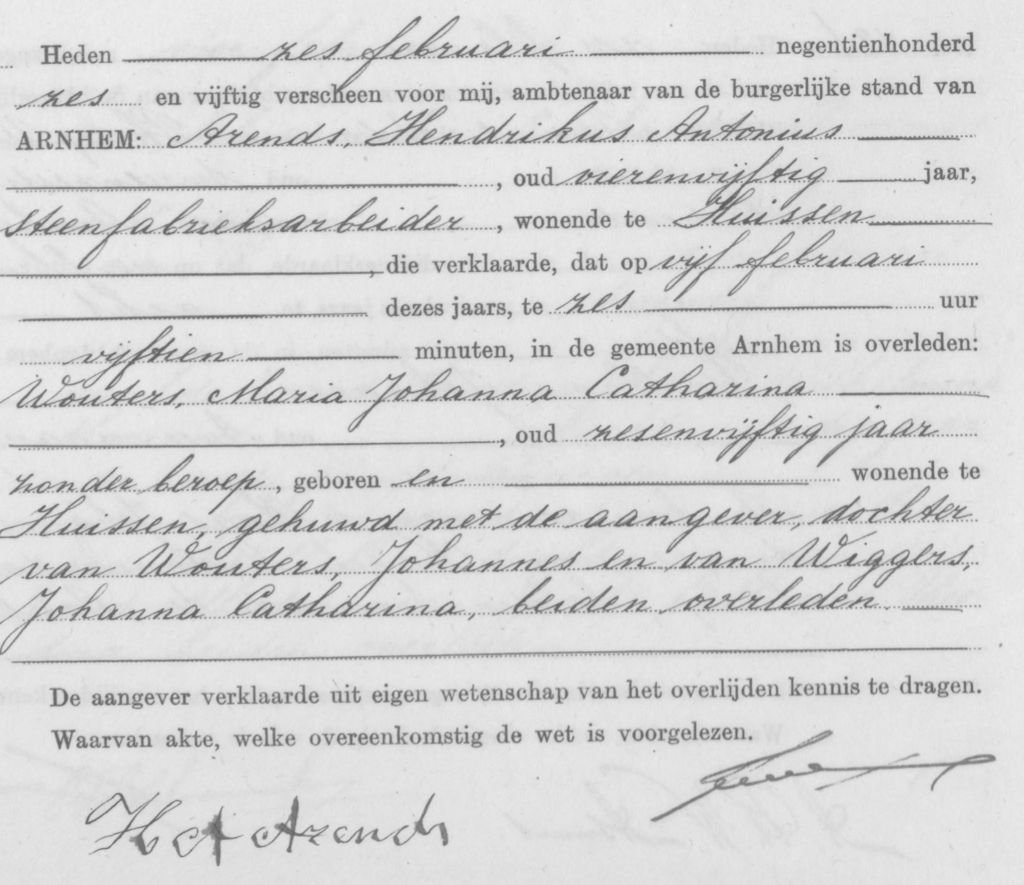 Heden zes februari negentienhonderd
zes en vijftig verscheen voor mij, ambtenaar van de burgerlijke stand van
ARNHEM: Arends, Hendrikus Antonius
, oud vierenvijftig jaar,
steenfabrieksarbeider, wonende te Huissen
, die verklaarde, dat op vijf februari
dezes jaars, te zes uur
vijftien minuten, in de gemeente Arnhem is overleden:
Wouters, Maria Johanna Catharina
, oud zesenvijftig jaar
zonder beroep, geboren en wonende te
Huissen, gehuwd met de aangever, dochter
van Wouters, Johannes en van Wiggers,
Johanna Catharina, beiden overleden.
De aangever verklaarde uit eigen wetenschap van het overlijden kennis te dragen.
Waarvan akte, welke overeenkomstig de wet is voorgelezen.
H A Arends